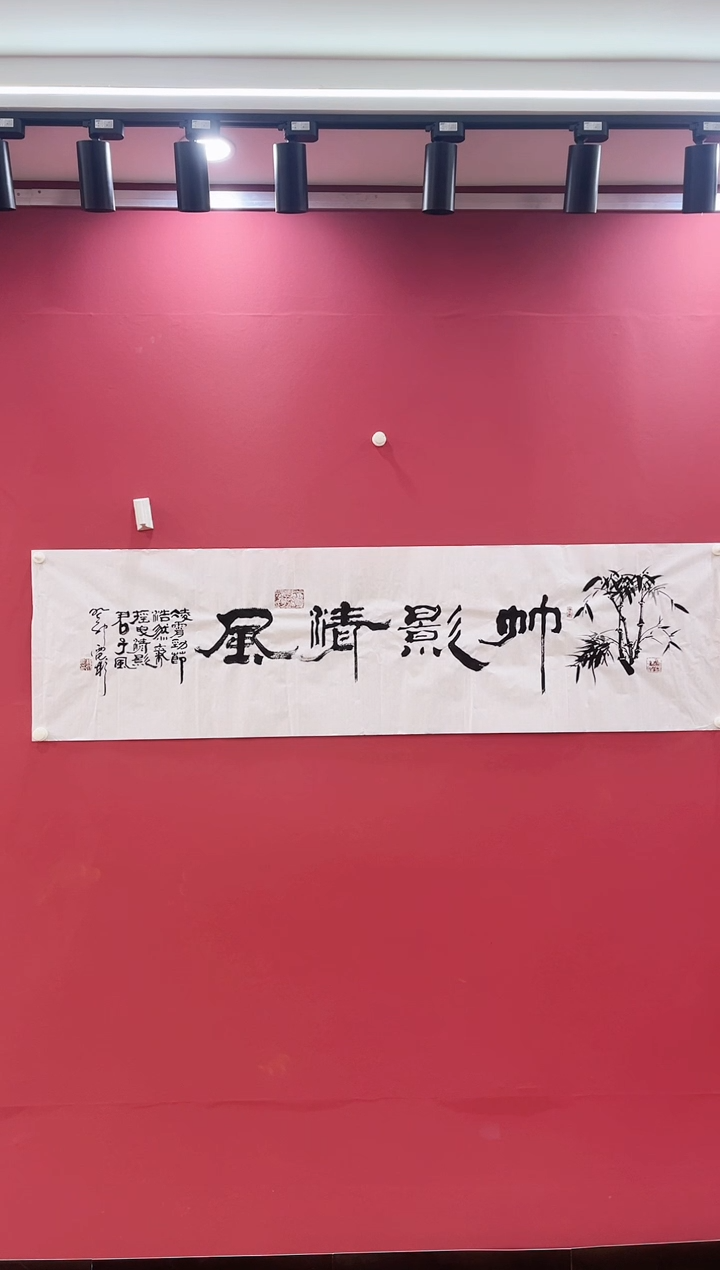 竹影清風
凌霄勁節
浩然
摇曳清影
君子風
癸卯